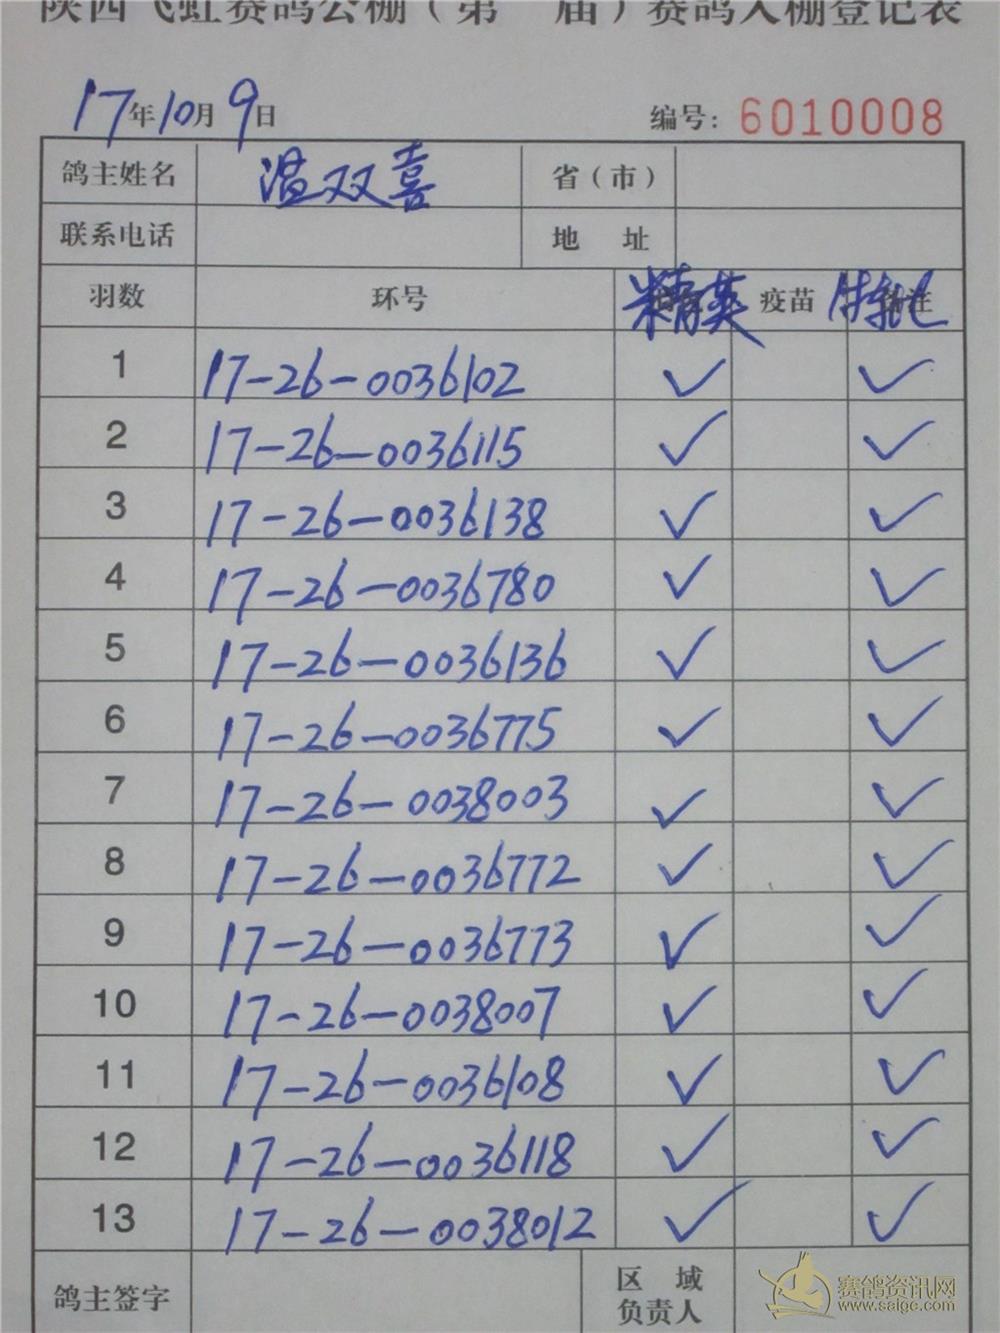 陕西飞虹赛鸽公棚（第 届）赛鸽入棚登记表
17年10月9日 编号: 6010008
鸽主姓名 温双喜 省（市）
联系电话 地 址
羽数 环号 精英 疫苗
1 17-26-0036102 ✓ ✓
2 17-26-0036115 ✓ ✓
3 17-26-0036138 ✓ ✓
4 17-26-0036780 ✓ ✓
5 17-26-0036136 ✓ ✓
6 17-26-0036775 ✓ ✓
7 17-26-0038003 ✓ ✓
8 17-26-0036772 ✓ ✓
9 17-26-0036773 ✓ ✓
10 17-26-0038007 ✓ ✓
11 17-26-0036108 ✓ ✓
12 17-26-0036118 ✓ ✓
13 17-26-0038012 ✓ ✓
鸽主签字 区 域
负责人
赛鸽资讯网
www.saigc.com